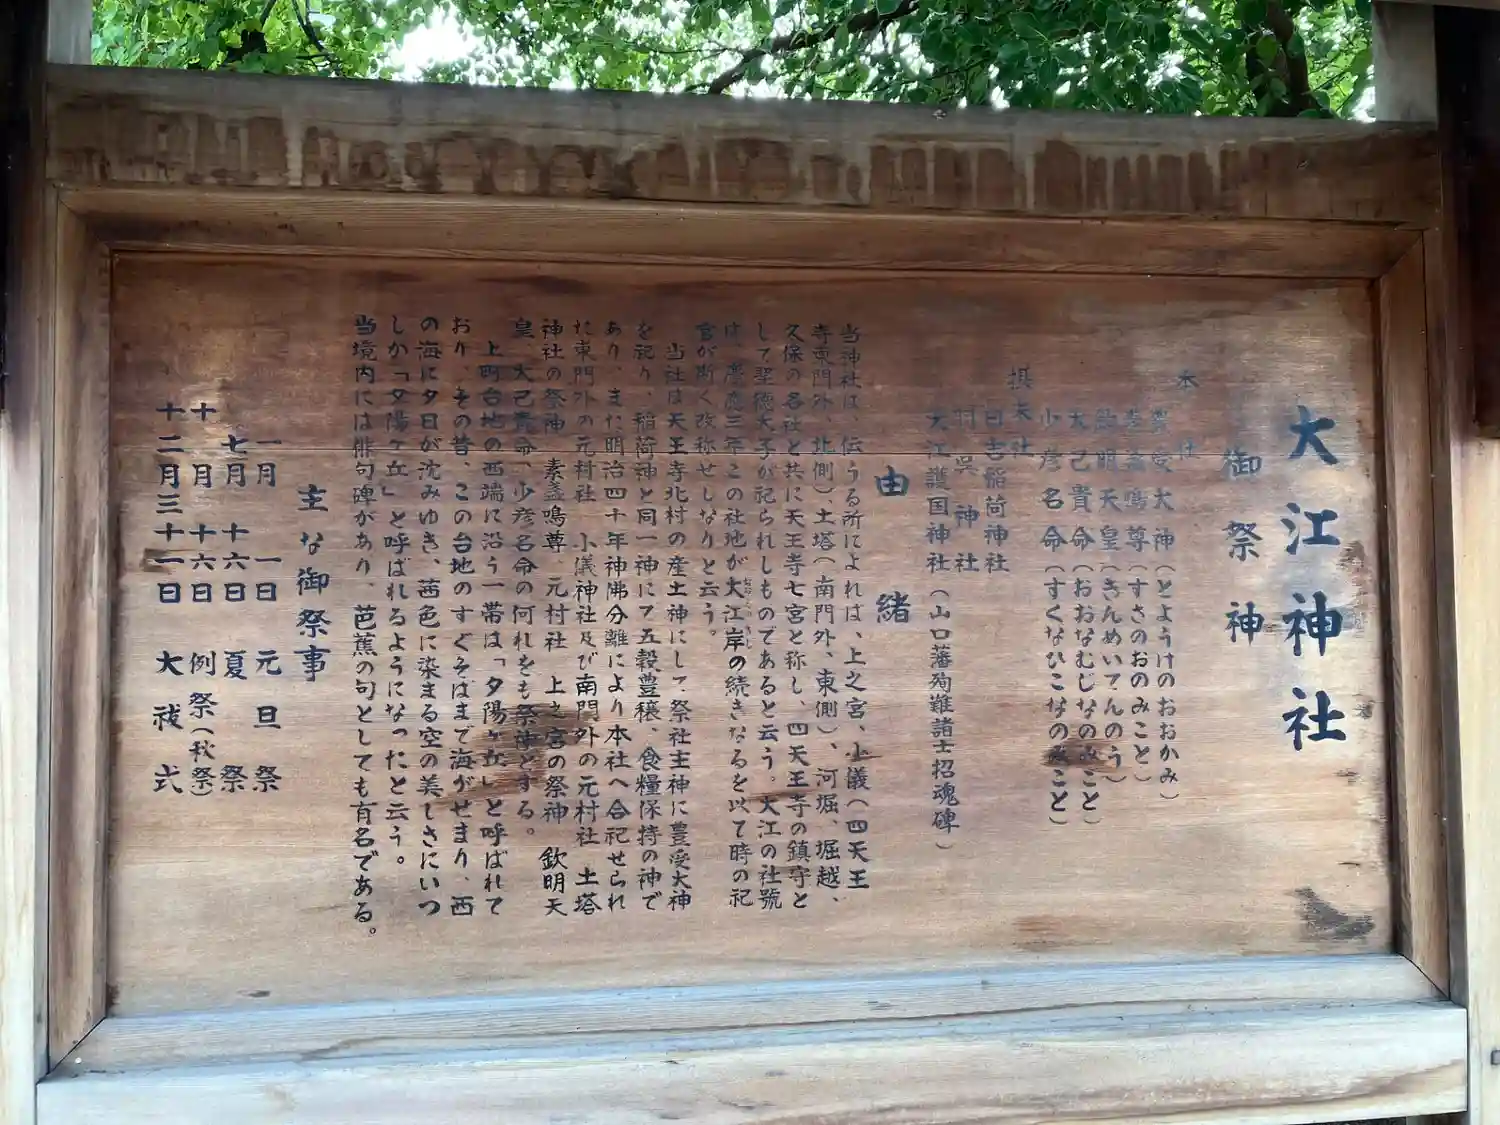 大江神社
御祭神
本社
豊受大神(とようけのおおかみ)
素盞鳴尊(すさのおのみこと)
欽明天皇(きんめいてんのう)
大己貴命(おおなむじなのみこと)
少彦名命(すくなひこなのみこと)
摂末社
日吉稲荷神社
神社
大江護国神社(山口藩殉難諸士招魂碑)
由緒
当神社は、伝うる所によれば、上之宮、小儀(四天王
寺東門外、北側)、土塔(南門外、東側)、河堀、堀越、
久保の各社と共に天王寺七宮と称し、四天王寺の鎮守と
して聖徳太子が祀られしものであると云う。大江の社號
は、慶應三年この社地が大江岸の続きなるを以て時の祀
官が斯く改称せしなりと云う。
当社は天王寺北村の産土神にして、祭社主神に豊受大神
を祀り、稲荷神と同一神にて五穀豊穣、食糧保持の神で
あり、また明治四十年神佛分離により本社へ合祀せられ
た東門外の元村社 小儀神社及び南門外の元村社 土塔
神社の祭神 素盞鳴尊、元村社 上之宮の祭神 欽明天
皇、大己貴命、少彦名命の何れをも祭神とする。
上町台地の西端に沿う一帯は「夕陽ヶ丘」と呼ばれて
おり、その昔、この台地のすぐそばまで海がせまり、西
の海に夕日が沈みゆき、茜色に染まる空の美しさにいつ
しか「夕陽ヶ丘」と呼ばれるようになったと云う。
当境内には俳句碑があり、芭蕉の句としても有名である。
主な御祭事
一月 一日 元旦祭
七月 十六日 夏祭
十月 十六日 例祭(秋祭)
十二月三十一日 大祓式